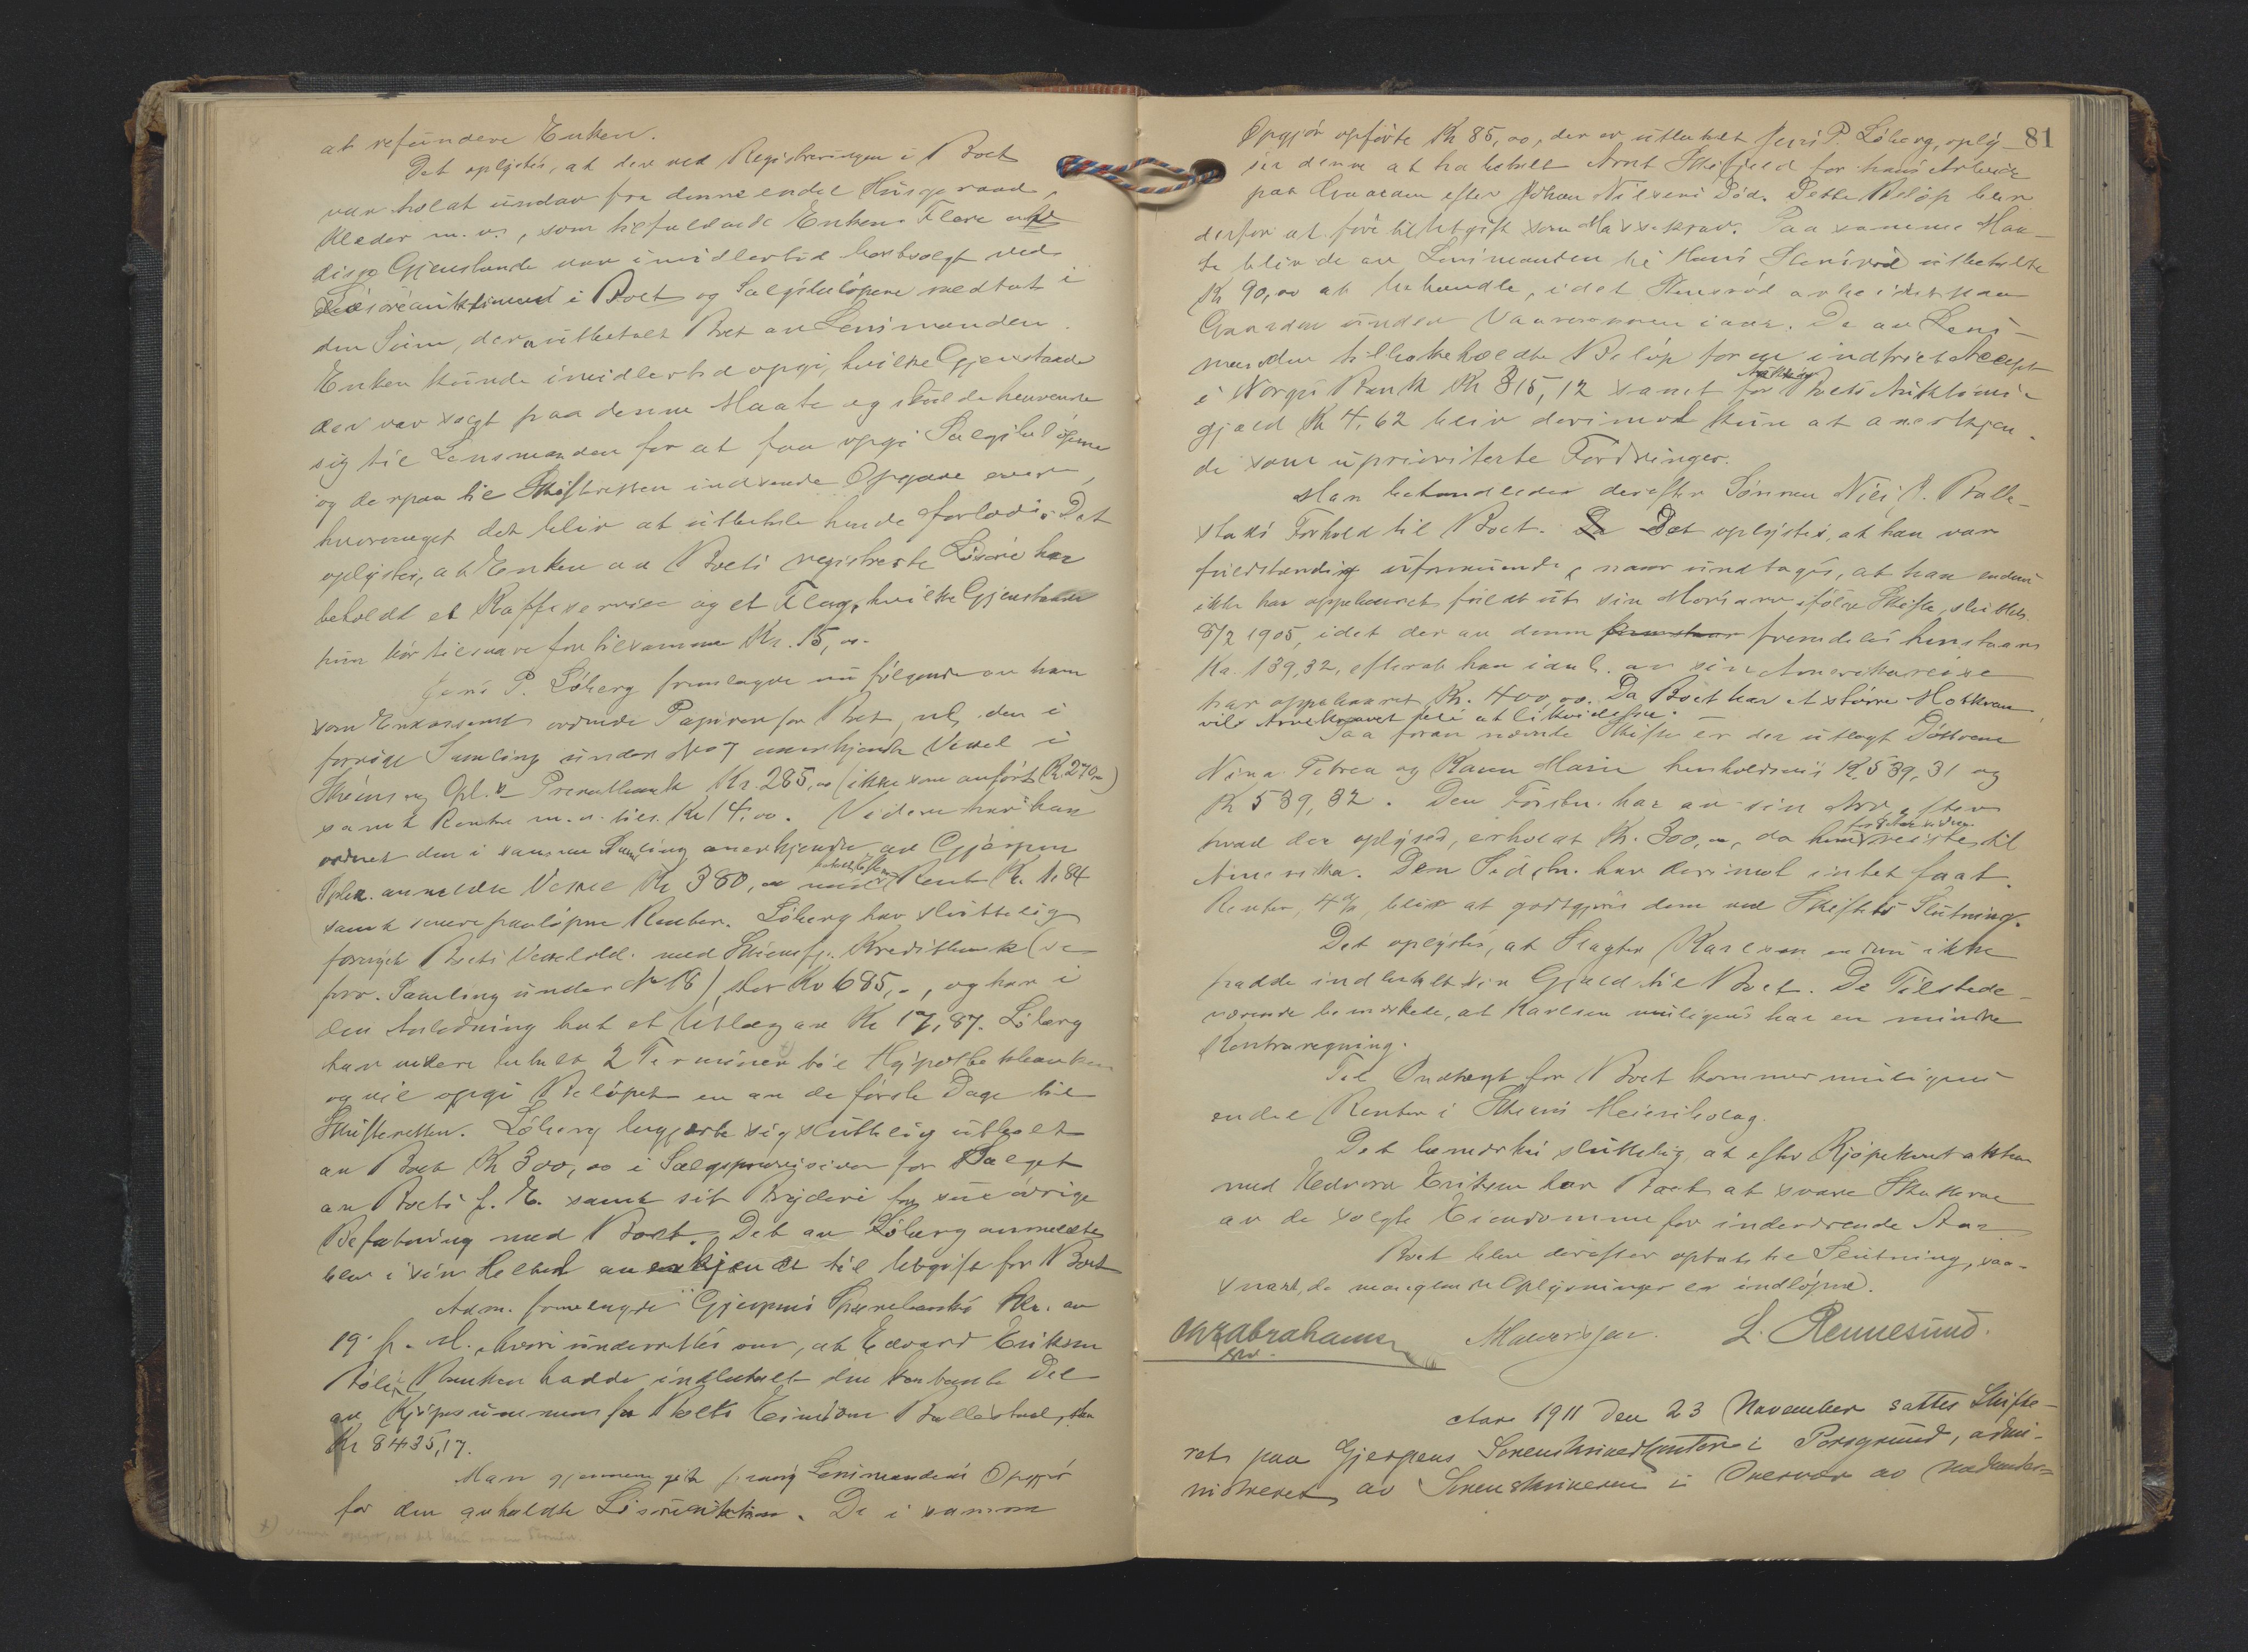 at refundere Enken.
Det oplystes, at der ved Registreringen i Boet
var holdt undav fra denne endel Husgeraad,
Klæder m. v., som tilfaldt Enken. Flere av
disse Gjenstande var imidlertid bortsolgt ved
Løsøreauktionen i Boet og Salgsbeløpene medtat i
den Sum, der er utbetalt Boet av Lensmanden.
Enken kunde imidlertid opgi, hvilke Gjenstande
der var solgt paa denne Maate og skulde henvende
sig til Lensmanden for at faa opgit Salgsbeløpene
og derpaa til Skifteretten indsende Opgave over,
hvormeget det blir at utbetale hende forlods. Det
oplystes, at Enken av Boets registrerte Løsøre har
beholdt et Kaffeservise og et Flag, hvilke Gjenstande
hun bør tilsvare for tilsammen Kr. 15,00.
Jens P. Löberg fremlagde nu følgende av ham
som Inkassator ordnede Papirer for Boet, nl. den i
forrige Samling under No 7 anerkjendte Veksel i
Skiens og Opl.s Privatbank Kr. 285,00 (ikke som anført Kr 270,00)
samt Renter m. v. tils. Kr 14,00. Videre har han
ordnet den i samme Samling anerkjendte av Gjerpen
Spbk. anmeldte Veksel Kr 380,00 med Rente Kr. 1,84
samt senere paaløpne Renter. Löberg har sluttelig
fornyet Boets Vekselobl. med Skiensfj. Kreditbank (se
forr. Samling under No 18) stor Kr 685,-, og har i
den Anledning hat et Utlæg av Kr 17,87. Löberg
har videre betalt 2 Terminer *) til Hypothekbanken
og vil opgi Beløpet en av de første Dage til
Skifteretten. Löberg begjærte sig sluttelig utbetalt
av Boet Kr 300,00 i Salgsprovision for Salget
av Boets f. E. samt sit Bryderi for sin øvrige
Befatning med Boet. Det av Löberg anmeldte
blev i sin Helhed anerkjendt til Utgift for Boet.
Adm. fremlagde Gjerpens Sparebanks Skr. av
19 f. M., hvori underrettes om, at Edvard Eriksen
Bøle i Banken hadde indbetalt den kontante Del
av Kjøpesummen for Boets Eiendom Ballestad, stor
Kr 8435,17.
Man gjennemgik foreløbig Lensmandens Opgjør
for den avholdte Løsøreauktion. De i samme
81
Opgjør opførte Kr 85,00, der er utbetalt Jens P. Löberg, oply-
ser denne at ha betalt Arnt Skifjeld for hans Arbeide
paa Gaarden efter Johan Nilsens Død. Dette Beløp blir
derfor at føre til Utgift som Massekrav. Paa samme Maa-
te blir de av Lensmanden til Hans Stensrød utbetalte
Kr 90,00 at behandle, idet Stensrød arbeidet paa
Gaarden under Vaaronnen iaar. De av Lens-
manden tilbakeholdte Beløp for en indfriet Accept
i Norges Bank Kr 315,12 samt for Boets Auktions-
gjæld Kr 4,62 blir derimod kun at anerkjen-
de som uprioriterte Fordringer.
Man behandledes derefter Sønnen Nils J. Balle-
stads Forhold til Boet. Det oplystes, at han var
fuldstændig uformuende, naar undtages, at han endnu
ikke har oppebaaret fuldt ut sin Morsarv ifølge Skifte, sluttet
8/2 1905, idet der av denne fremdeles henstaar
Kr. 139,32, efterat han i anl. av sin Amerikareise
har oppebaaret Kr. 400,00. Da Boet har et større Motkrav
vil Arvekravet bli at likvidere.
Paa foran nævnte Skifte er der utlagt Døtrene
Nina Petrea og Karen Marie henholdsvis Kr 539,31 og
Kr 539,32. Den Førstn. har av sin Arv, efter
hvad der oplyses, erholdt Kr. 300,00, da hun reiste til
Amerika. Den Sidstn. har derimot intet faat.
Renter, 4 %, blir at godtgjøres dem ved Skiftets Slutning.
Det oplystes, at Slagter Karlsen endnu ikke
hadde indbetalt sin Gjæld til Boet. De Tilstede-
værende bemærkede, at Karlsen muligens har en mindre
Kontraregning.
Til Indtægt for Boet kommer muligens
endel Renter i Skiens Meieribolag.
Det bemerkes sluttelig, at efter Kjøpekontrakten
med Edvard Eriksen bør Boet at svare Skatterne
av de solgte Eiendomme for indeværende Aar.
Boet blev derefter optat til Slutning, saa-
snart de manglende Oplysninger er indløpne.
Chr Abrahamsen Mauritzen. L. Rennesund.
Aar 1911 den 23 November sattes Skifte-
ret paa Gjerpens Sorenskriverkontor i Porsgrund, admi-
nistreret av Sorenskriveren i Overvær av nedenunder-